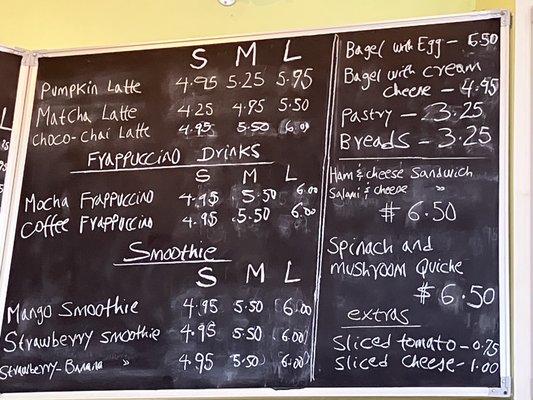 S M L
Pumpkin Latte 4.95 5.25 5.95
Matcha Latte 4.25 4.95 5.50
Choco-Chai Latte 4.95 5.50 6.00
Frappuccino Drinks
S M L
Mocha Frappuccino 4.95 5.50 6.00
Coffee Frappuccino 4.95 5.50 6.00
Smoothie
S M L
Mango Smoothie 4.95 5.50 6.00
Strawberry Smoothie 4.95 5.50 6.00
Strawberry-Banana " 4.95 5.50 6.00
Bagel with Egg - 6.50
Bagel with cream
cheese - 4.95
Pastry - 3.25
Breads - 3.25
Ham & cheese Sandwich
Salami & cheese "
$6.50
Spinach and
mushroom Quiche
$6.50
extras
Sliced tomato - 0.75
Sliced cheese - 1.00